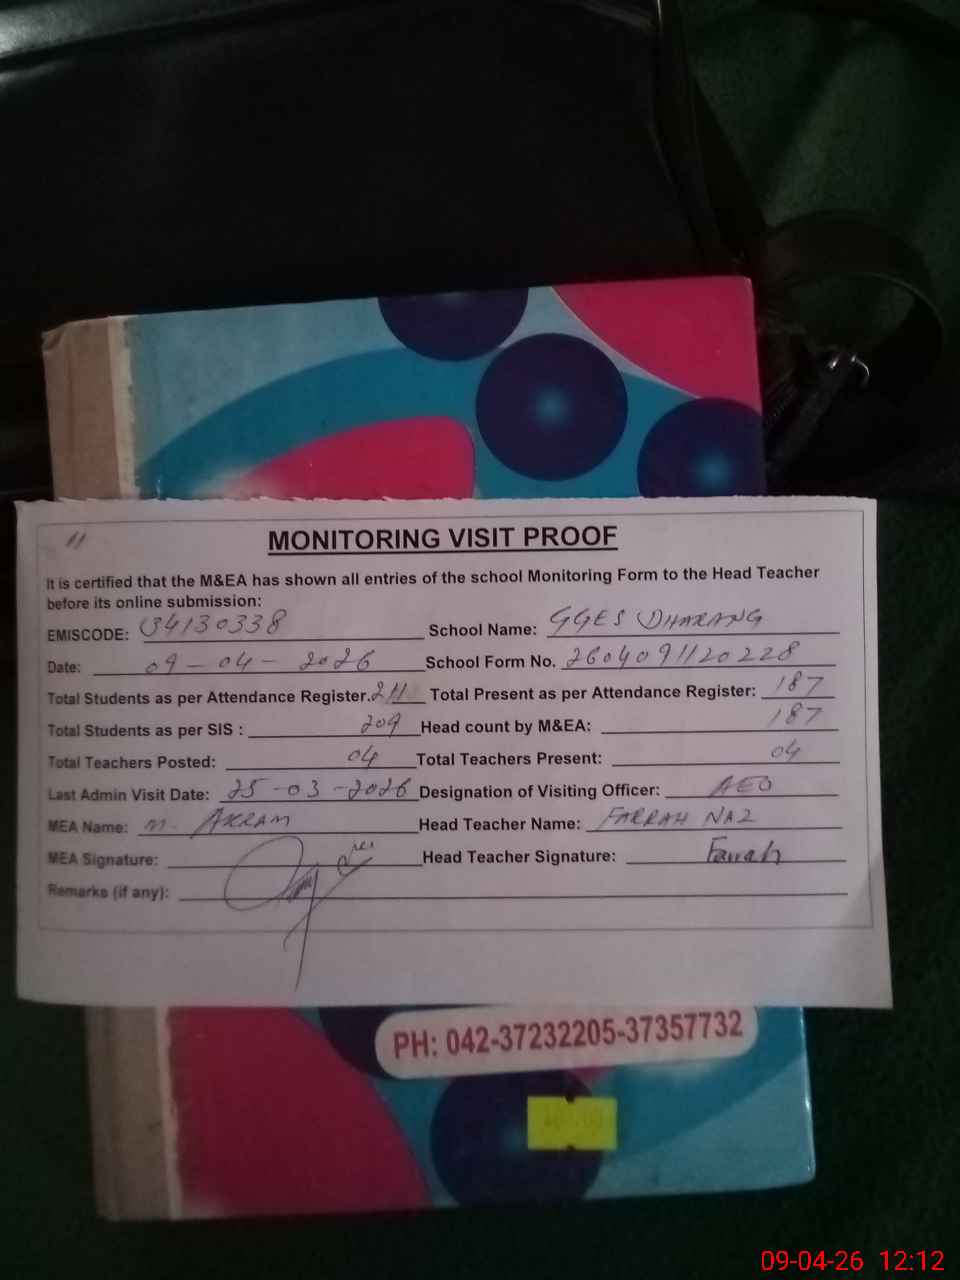 11
MONITORING VISIT PROOF
It is certified that the M&EA has shown all entries of the school Monitoring Form to the Head Teacher
before its online submission:
EMISCODE: 34130338 School Name: GGES DHARANG
Date: 09-04-2026 School Form No. 2604091120228
Total Students as per Attendance Register. 211 Total Present as per Attendance Register: 187
Total Students as per SIS : 209 Head count by M&EA: 187
Total Teachers Posted: 04 Total Teachers Present: 04
Last Admin Visit Date: 25-03-2026 Designation of Visiting Officer: AEO
MEA Name: M. AKRAM Head Teacher Name: FARRAH NAZ
MEA Signature: Head Teacher Signature: Farrah
Remarks (if any):
PH: 042-37232205-37357732
09-04-26 12:12